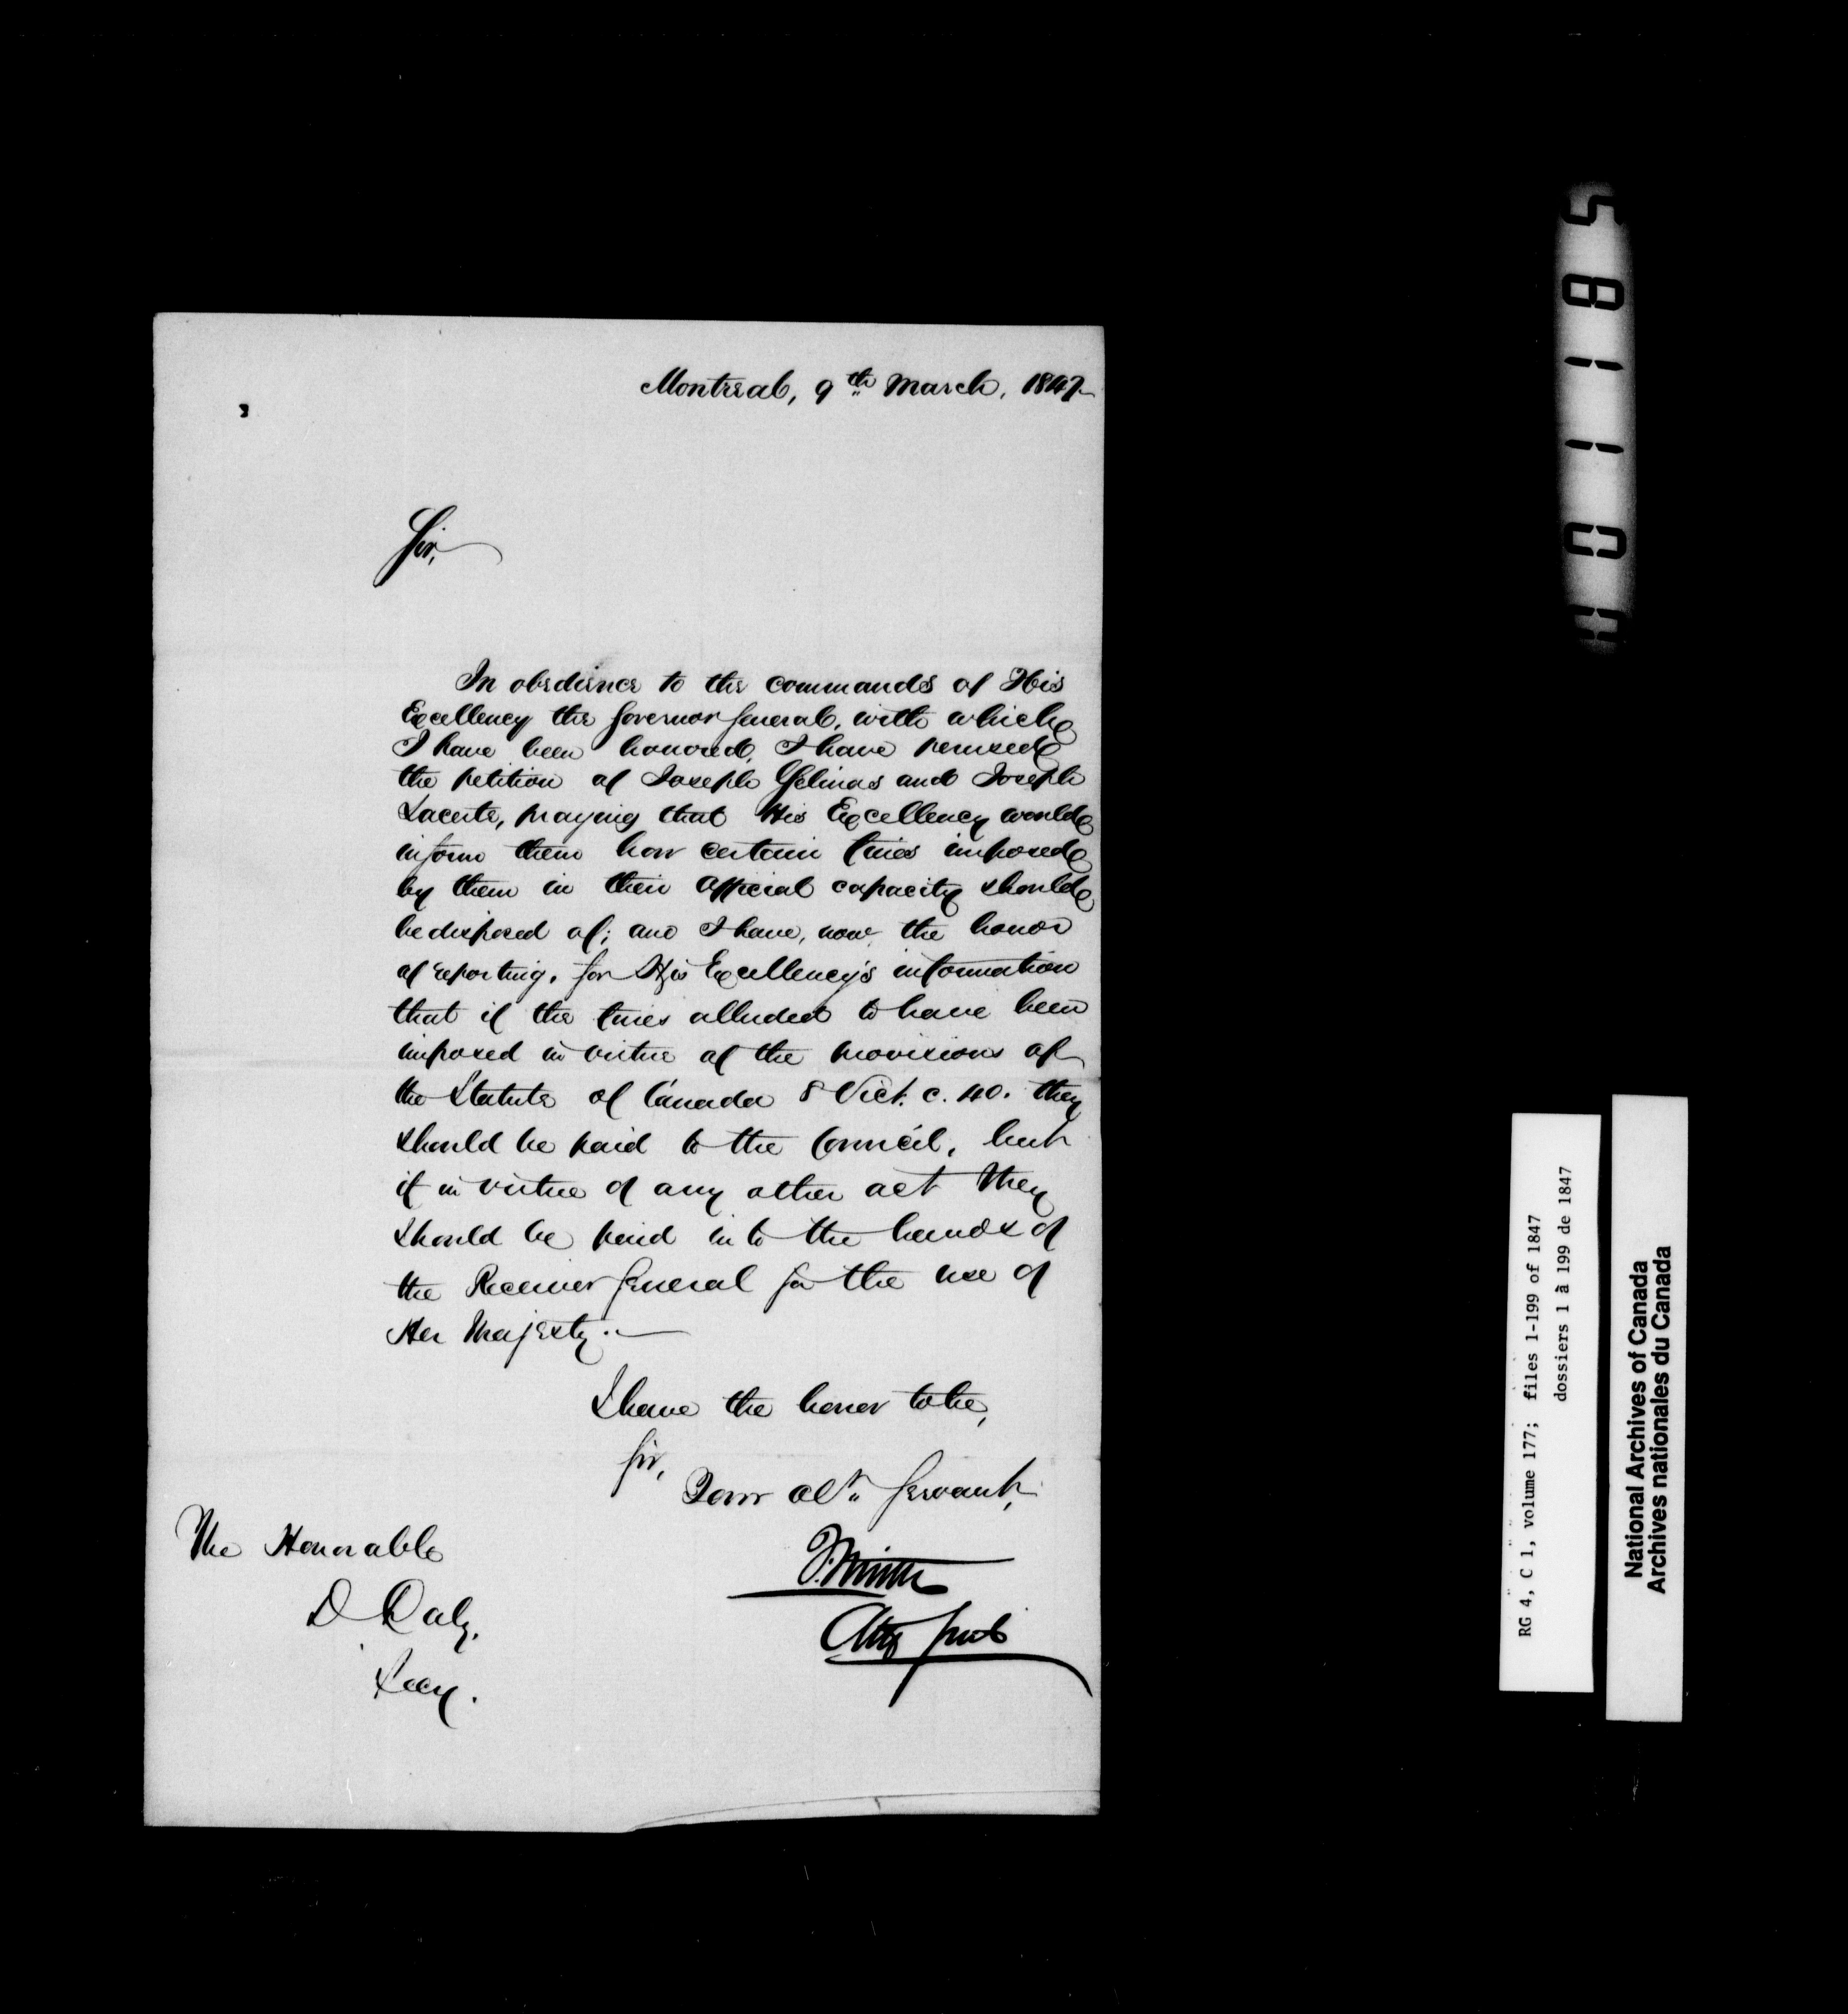 Montreal, 9th March, 1847
Sir,
In obedience to the commands of His
Excellency the Governor General, with which
I have been honored, I have perused
the petition of Joseph Gelinas and Joseph
Lacerte, praying that His Excellency would
inform them how certain fines imposed
by them in their official capacity should
be disposed of; and I have, now the honor
of reporting, for His Excellency's information
that if the fines alluded to have been
imposed in virtue of the provisions of
the Statute of Canada 8 Vict. c. 40. they
should be paid to the Council, but
if in virtue of any other act they
should be paid into the hands of
the Receiver General for the use of
Her Majesty.
I have the honor to be,
Sir,
Your obt. Servant,
Atty Genl
The Honorable
D Daly.
Secy.
011815
RG 4, C 1, volume 177; files 1-199 of 1847
dossiers 1 à 199 de 1847
National Archives of Canada
Archives nationales du Canada